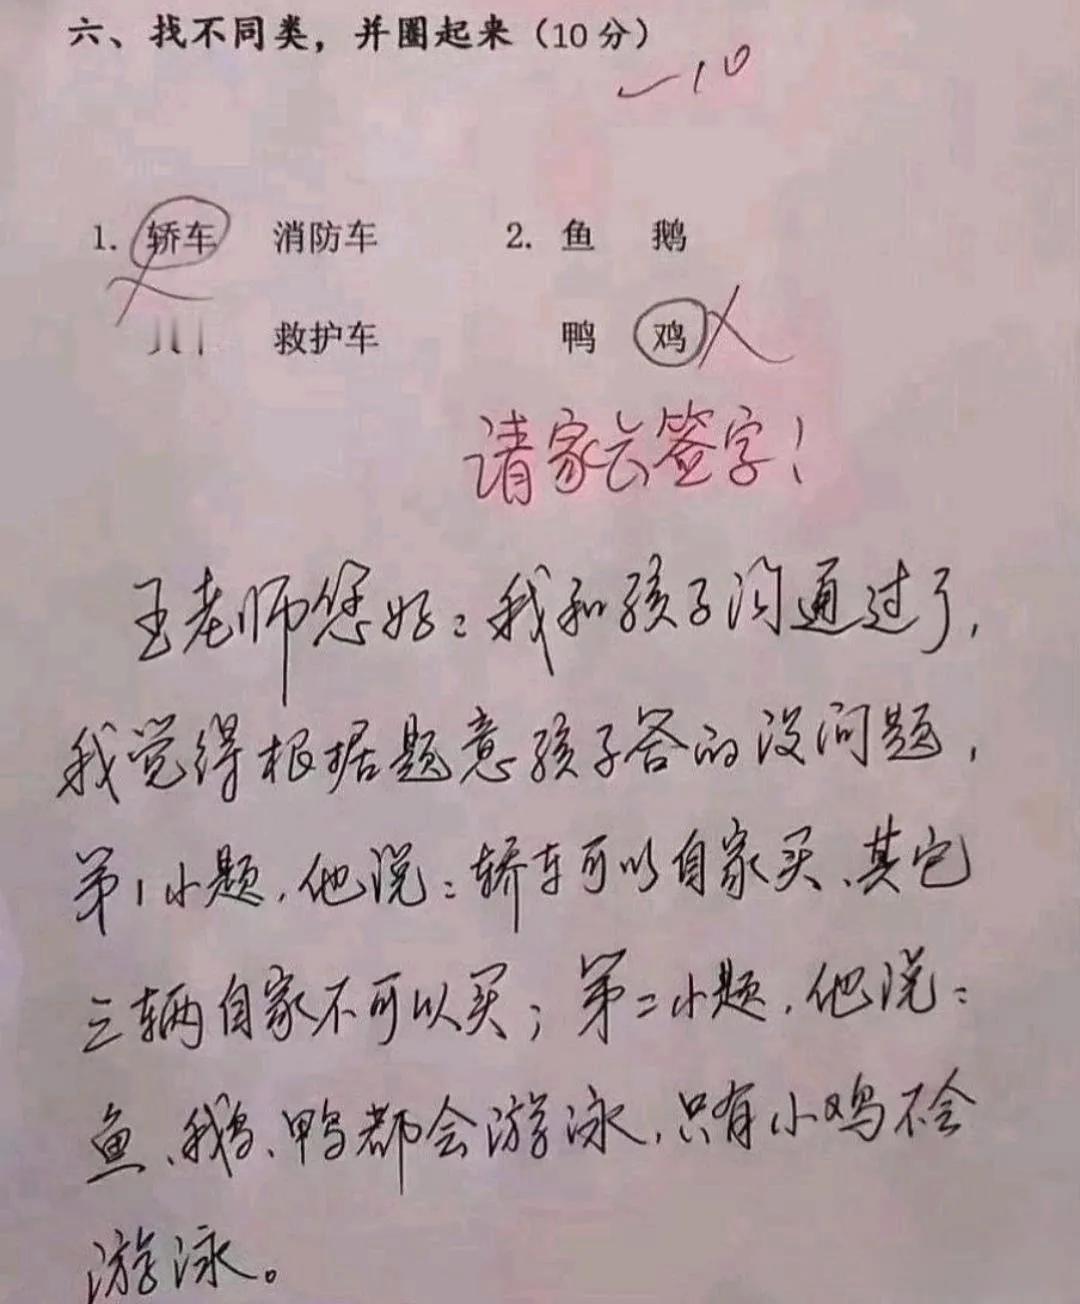 六、找不同类，并圈起来（10分）
-10
1. 轿车 消防车 2. 鱼 鹅
救护车 鸭 鸡
请家长签字！
王老师您好：我和孩子沟通过了，
我觉得根据题意孩子答的没问题，
第1小题，他说：轿车可以自家买、其它
三辆自家不可以买；第二小题，他说：
鱼、鹅、鸭都会游泳，只有小鸡不会
游泳。